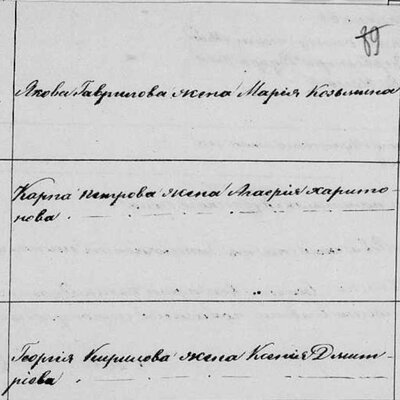 89
Якова Гаврилова жена Мария Козьмина
Карпа Петрова жена Агафия Харито-
нова.
Георгия Кирилова жена Ксения Дмит-
риева